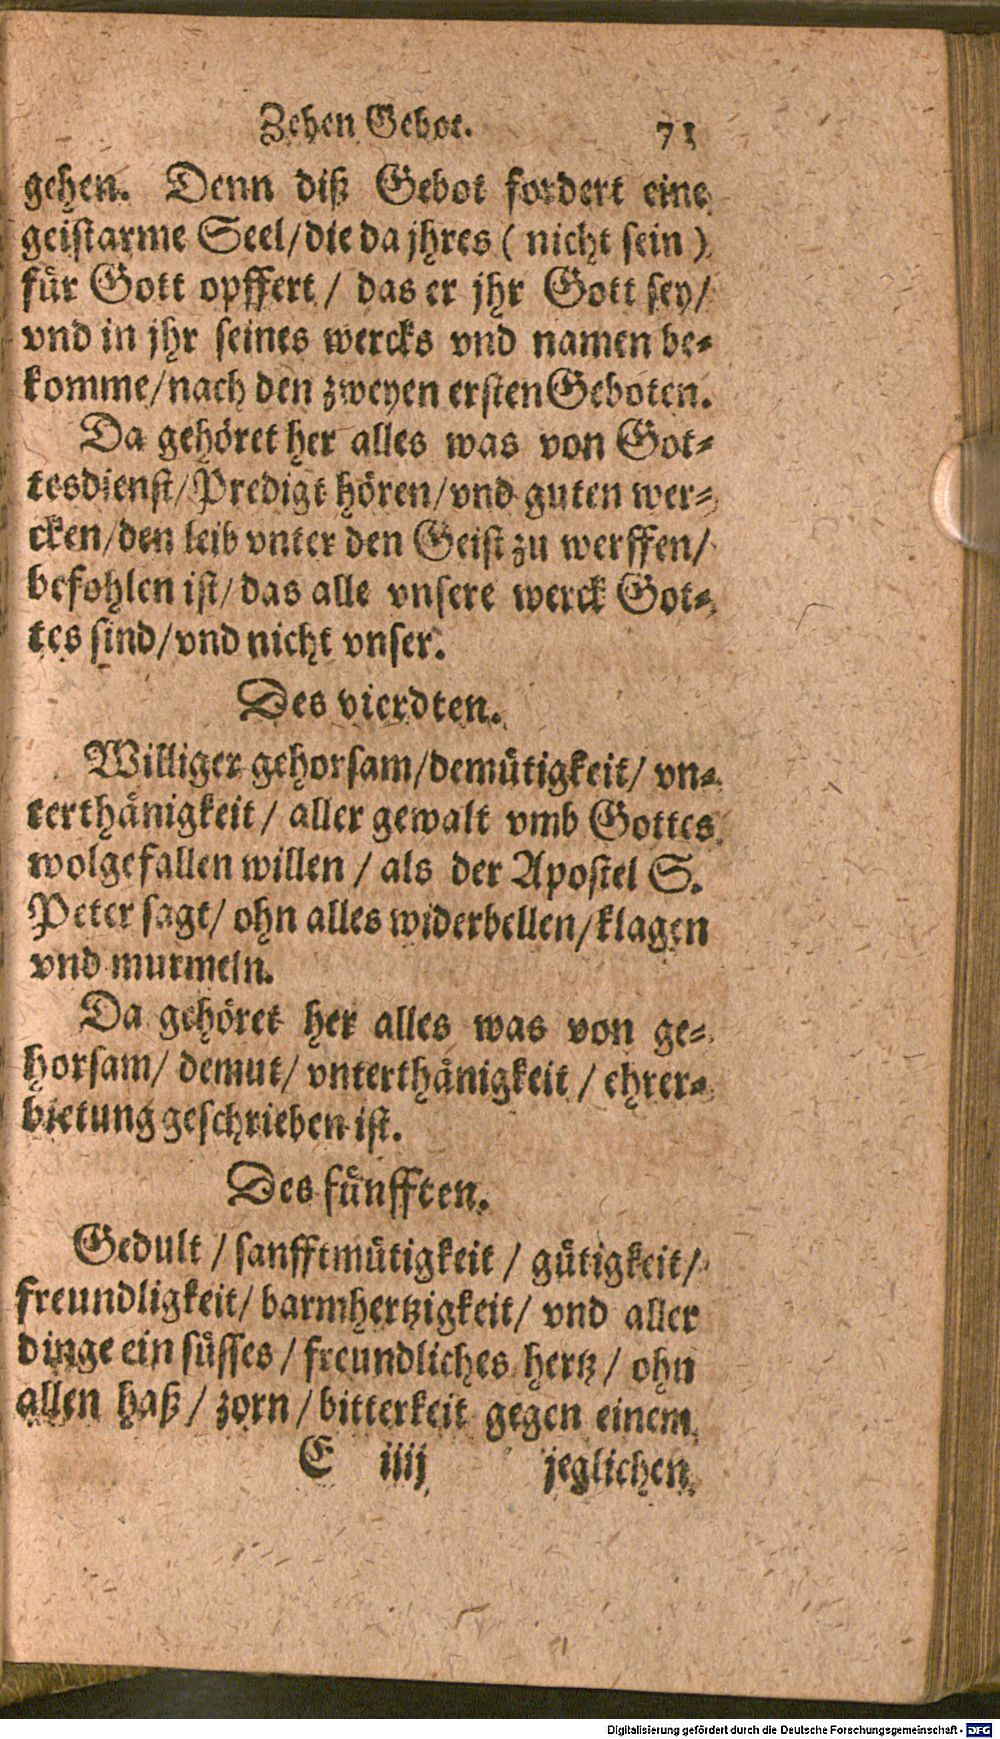 Zehen Gebot. 71
gehen. Denn diß Gebot fordert eine
geistarme Seel/die da jhres ( nicht sein )
für Gott opffert / das er jhr Gott sey/
vnd in jhr seines wercks vnd namen be-
komme/nach den zweyen ersten Geboten.
Da gehöret her alles was von Got-
tesdienst/Predigt hören/vnd guten wer-
cken/den leib vnter den Geist zu werffen/
befohlen ist/das alle vnsere werck Got-
tes sind/vnd nicht vnser.
Des vierdten.
Williger gehorsam/demütigkeit/ vn-
terthänigkeit / aller gewalt vmb Gottes
wolgefallen willen / als der Apostel S.
Peter sagt/ ohn alles widerbellen/klagen
vnd murmeln.
Da gehöret her alles was von ge-
horsam/ demut/ vnterthänigkeit / ehrer-
bietung geschrieben ist.
Des fünfften.
Gedult / sanfftmütigkeit / gütigkeit/
freundligkeit/ barmhertzigkeit/ vnd aller
dinge ein süsses / freundliches hertz / ohn
allen haß / zorn / bitterkeit gegen einem
E iiij jeglichen
Digitalisierung gefördert durch die Deutsche Forschungsgemeinschaft - DFG